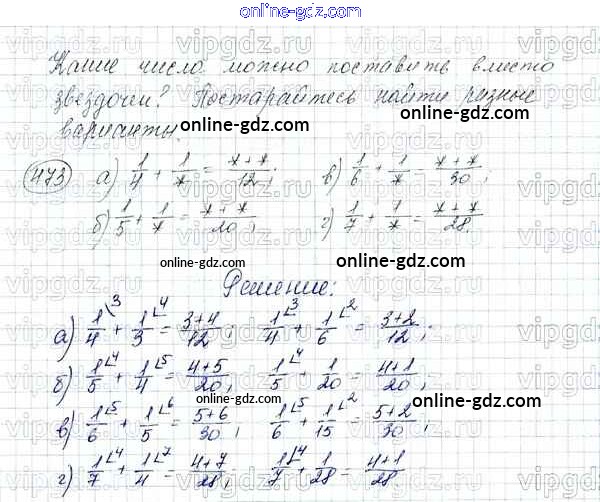 online-gdz.com
vipgdz.ru vipgdz.ru vipgdz.ru
Какие числа можно поставить вместо
звездочки? Постарайтесь найти разные
варианты.
online-gdz.com
473 а) 1/4 + 1/* = (*+*)/12; в) 1/6 + 1/* = (*+*)/30;
б) 1/5 + 1/* = (*+*)/20; г) 1/7 + 1/* = (*+*)/28.
online-gdz.com
Решение:
а) 1/4 \3 + 1/3 \4 = (3+4)/12; 1/4 \3 + 1/6 \2 = (3+2)/12;
online-gdz.com
б) 1/5 \4 + 1/4 \5 = (4+5)/20; 1/5 \4 + 1/20 = (4+1)/20;
online-gdz.com
в) 1/6 \5 + 1/5 \6 = (5+6)/30; 1/6 \5 + 1/15 \2 = (5+2)/30;
online-gdz.com
г) 1/7 \4 + 1/4 \7 = (4+7)/28; 1/7 \4 + 1/28 = (4+1)/28.